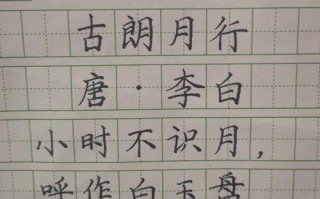 古朗月行
唐·李白
小时不识月，
呼作白玉盘